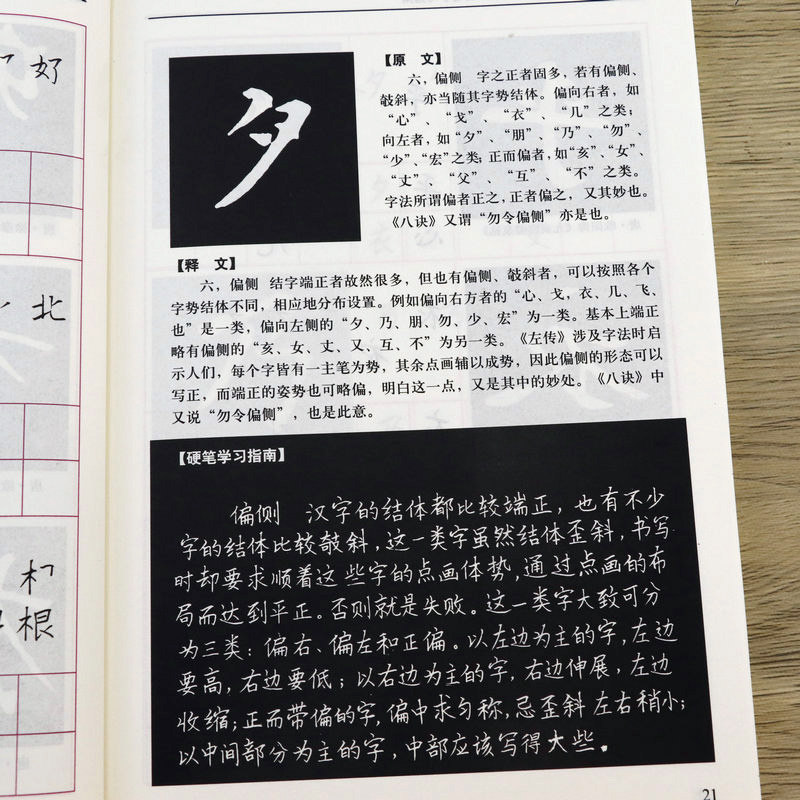 好
北
根
夕
【原 文】
六，偏侧 字之正者固多，若有偏侧、
攲斜，亦当随其字势结体。偏向右者，如
“心”、“戈”、“衣”、“几”之类；
向左者，如“夕”、“朋”、“乃”、“勿”、
“少”、“宏”之类；正而偏者，如“亥”、“女”、
“丈”、“父”、“互”、“不”之类。
字法所谓偏者正之，正者偏之，又其妙也。
《八诀》又谓“勿令偏侧”亦是也。
【释 文】
六，偏侧 结字端正者故然很多，但也有偏侧、攲斜者，可以按照各个
字势结体不同，相应地分布设置。例如偏向右方者的“心、戈，衣、几、飞、
也”是一类，偏向左侧的“夕、乃、朋、勿、少、宏”为一类。基本上端正
略有偏侧的“亥、女、丈、又、互、不”为另一类。《左传》涉及字法时启
示人们，每个字皆有一主笔为势，其余点画辅以成势，因此偏侧的形态可以
写正，而端正的姿势也可略偏，明白这一点，又是其中的妙处。《八诀》中
又说“勿令偏侧”，也是此意。
【硬笔学习指南】
偏侧 汉字的结体都比较端正，也有不少
字的结体比较攲斜，这一类字虽然结体歪斜，书写
时却要求顺着这些字的点画体势，通过点画的布
局而达到平正。否则就是失败。这一类字大致可分
为三类：偏右、偏左和正偏。以左边为主的字，左边
要高，右边要低；以右边为主的字，右边伸展，左边
收缩；正而带偏的字，偏中求匀称，忌歪斜左右稍小；
以中间部分为主的字，中部应该写得大些。
21